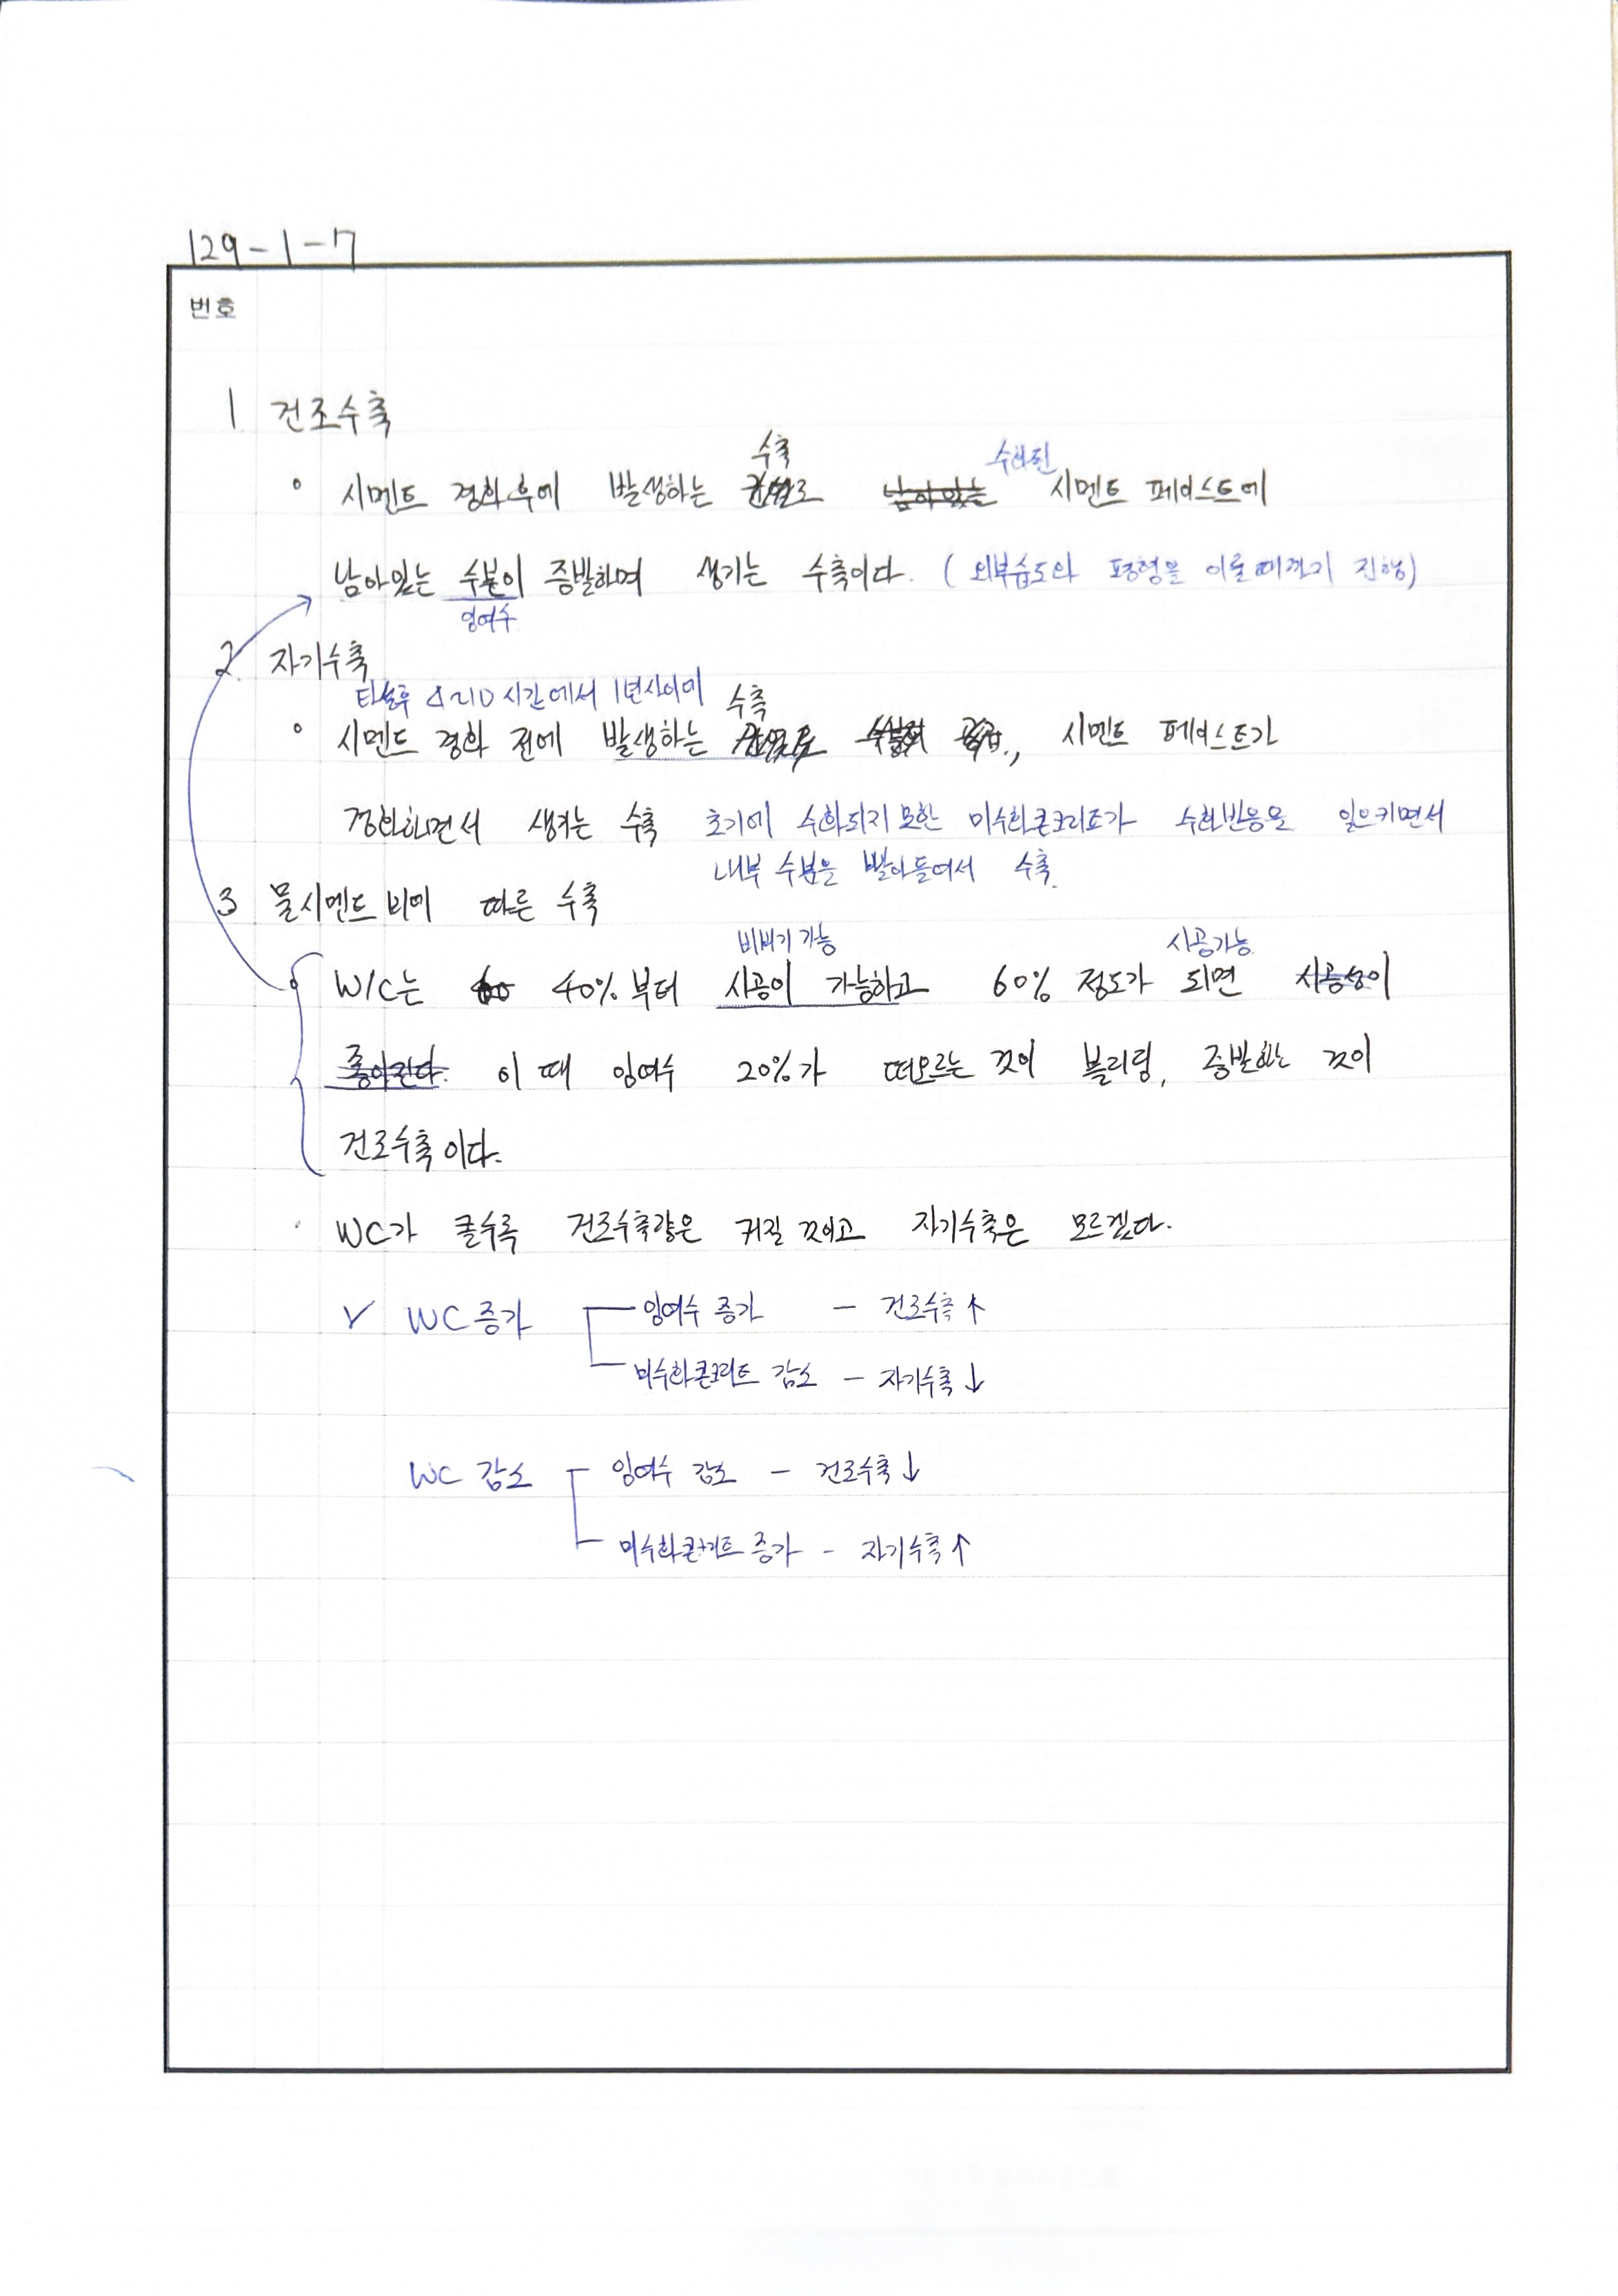 129-1-7
번호
1 건조수축
수축 수화된
시멘트 경화 후에 발생하는 로 남아있는 시멘트 페이스트에
남아있는 수분이 증발하며 생기는 수축이다. (외부습도와 평형을 이룰때까지 진행)
잉여수
2. 자기수축
타설후 시간에서 1년사이에 수축
시멘트 경화 전에 발생하는 시멘트 페이스트가
경화하면서 생기는 수축 초기에 수화되지 못한 미수화콘크리트가 수화반응을 일으키면서
내부 수분을 빨아들여서 수축.
3 물시멘트비에 따른 수축
비비기 가능 시공가능
W/C는 40%부터 시공이 가능하고 60% 정도가 되면 시공성이
좋아진다. 이 때 잉여수 20%가 떠오르는 것이 블리딩, 증발하는 것이
건조수축이다.
WC가 클수록 건조수축량은 커질 것이고 자기수축은 모르겠다.
✓ WC 증가 잉여수 증가 — 건조수축 ↑
미수화콘크리트 감소 — 자기수축 ↓
WC 감소 잉여수 감소 — 건조수축 ↓
미수화콘크리트 증가 - 자기수축 ↑